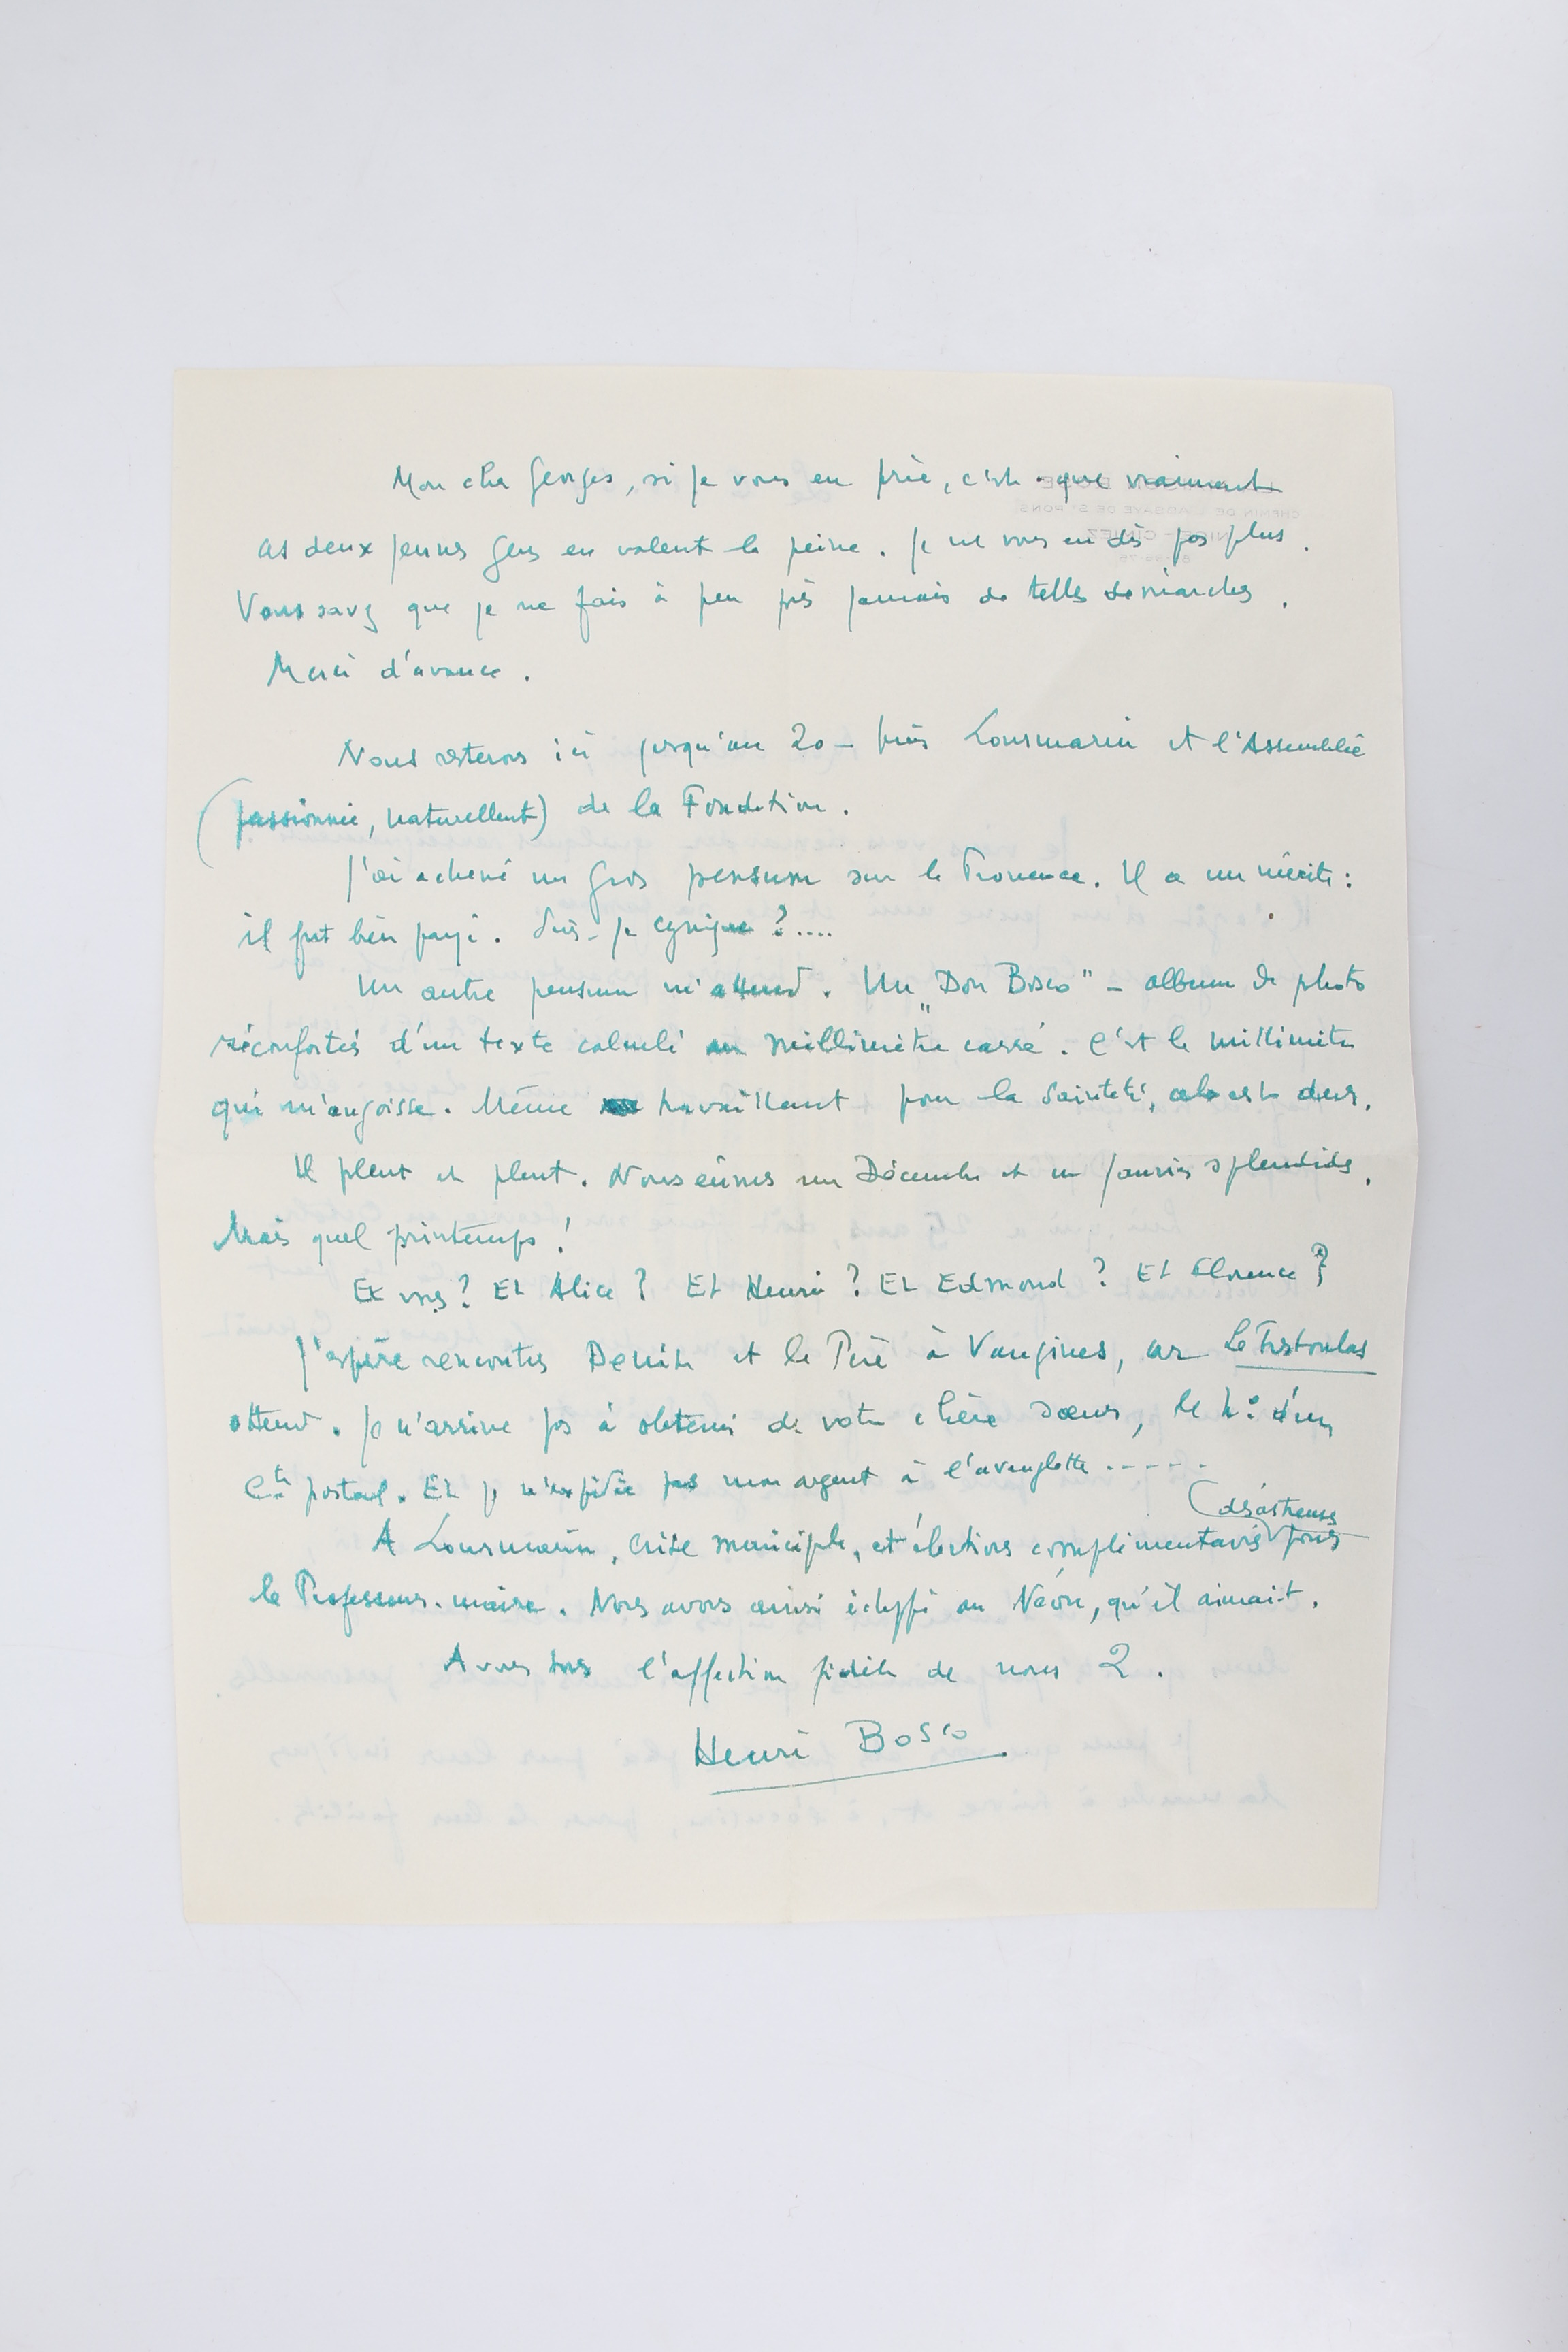 Mon cher Georges, si je vous en prie, c'est que vraiment
ces deux jeunes gens en valent la peine. Je ne vous en dis pas plus.
Vous savez que je ne fais à peu près jamais de telles démarches.
Merci d'avance.
Nous resterons ici jusqu'au 20 – puis Lourmarin et l'Assemblée
(passionnée, naturellent) de la Fondation.
J'ai achevé un gros pensum sur la Provence. Il a un mérite :
il fut bien payé. Suis-je cynique ?....
Un autre pensum m'attend. Un „Don Bosco" – album de photos
réconfortés d'un texte calculé au millimètre carré. C'est le millimètre
qui m'angoisse. Même travaillant pour la Sainteté, cela est dur.
Il pleut et pleut. Nous eûmes un Décembre et un Janvier splendides.
Mais quel printemps !
Et vous ? Et Alice ? Et Henri ? Et Edmond ? Et Florence ?
J'espère rencontrer Denise et le Père à Vaugines, car Le Trestoulas
attend. Je n'arrive pas à obtenir de votre chère sœur, le n° d'un
Cte postal. Et je n'expédie pas mon argent à l'aveuglette -----
(désastreuses
A Lourmarin, crise municiple, et élections complémentaires pour
le Professeur-maire. Nous avons ainsi échappé au Néon, qu'il aimait.
A vous tous l'affection fidèle de nous 2.
Henri Bosco